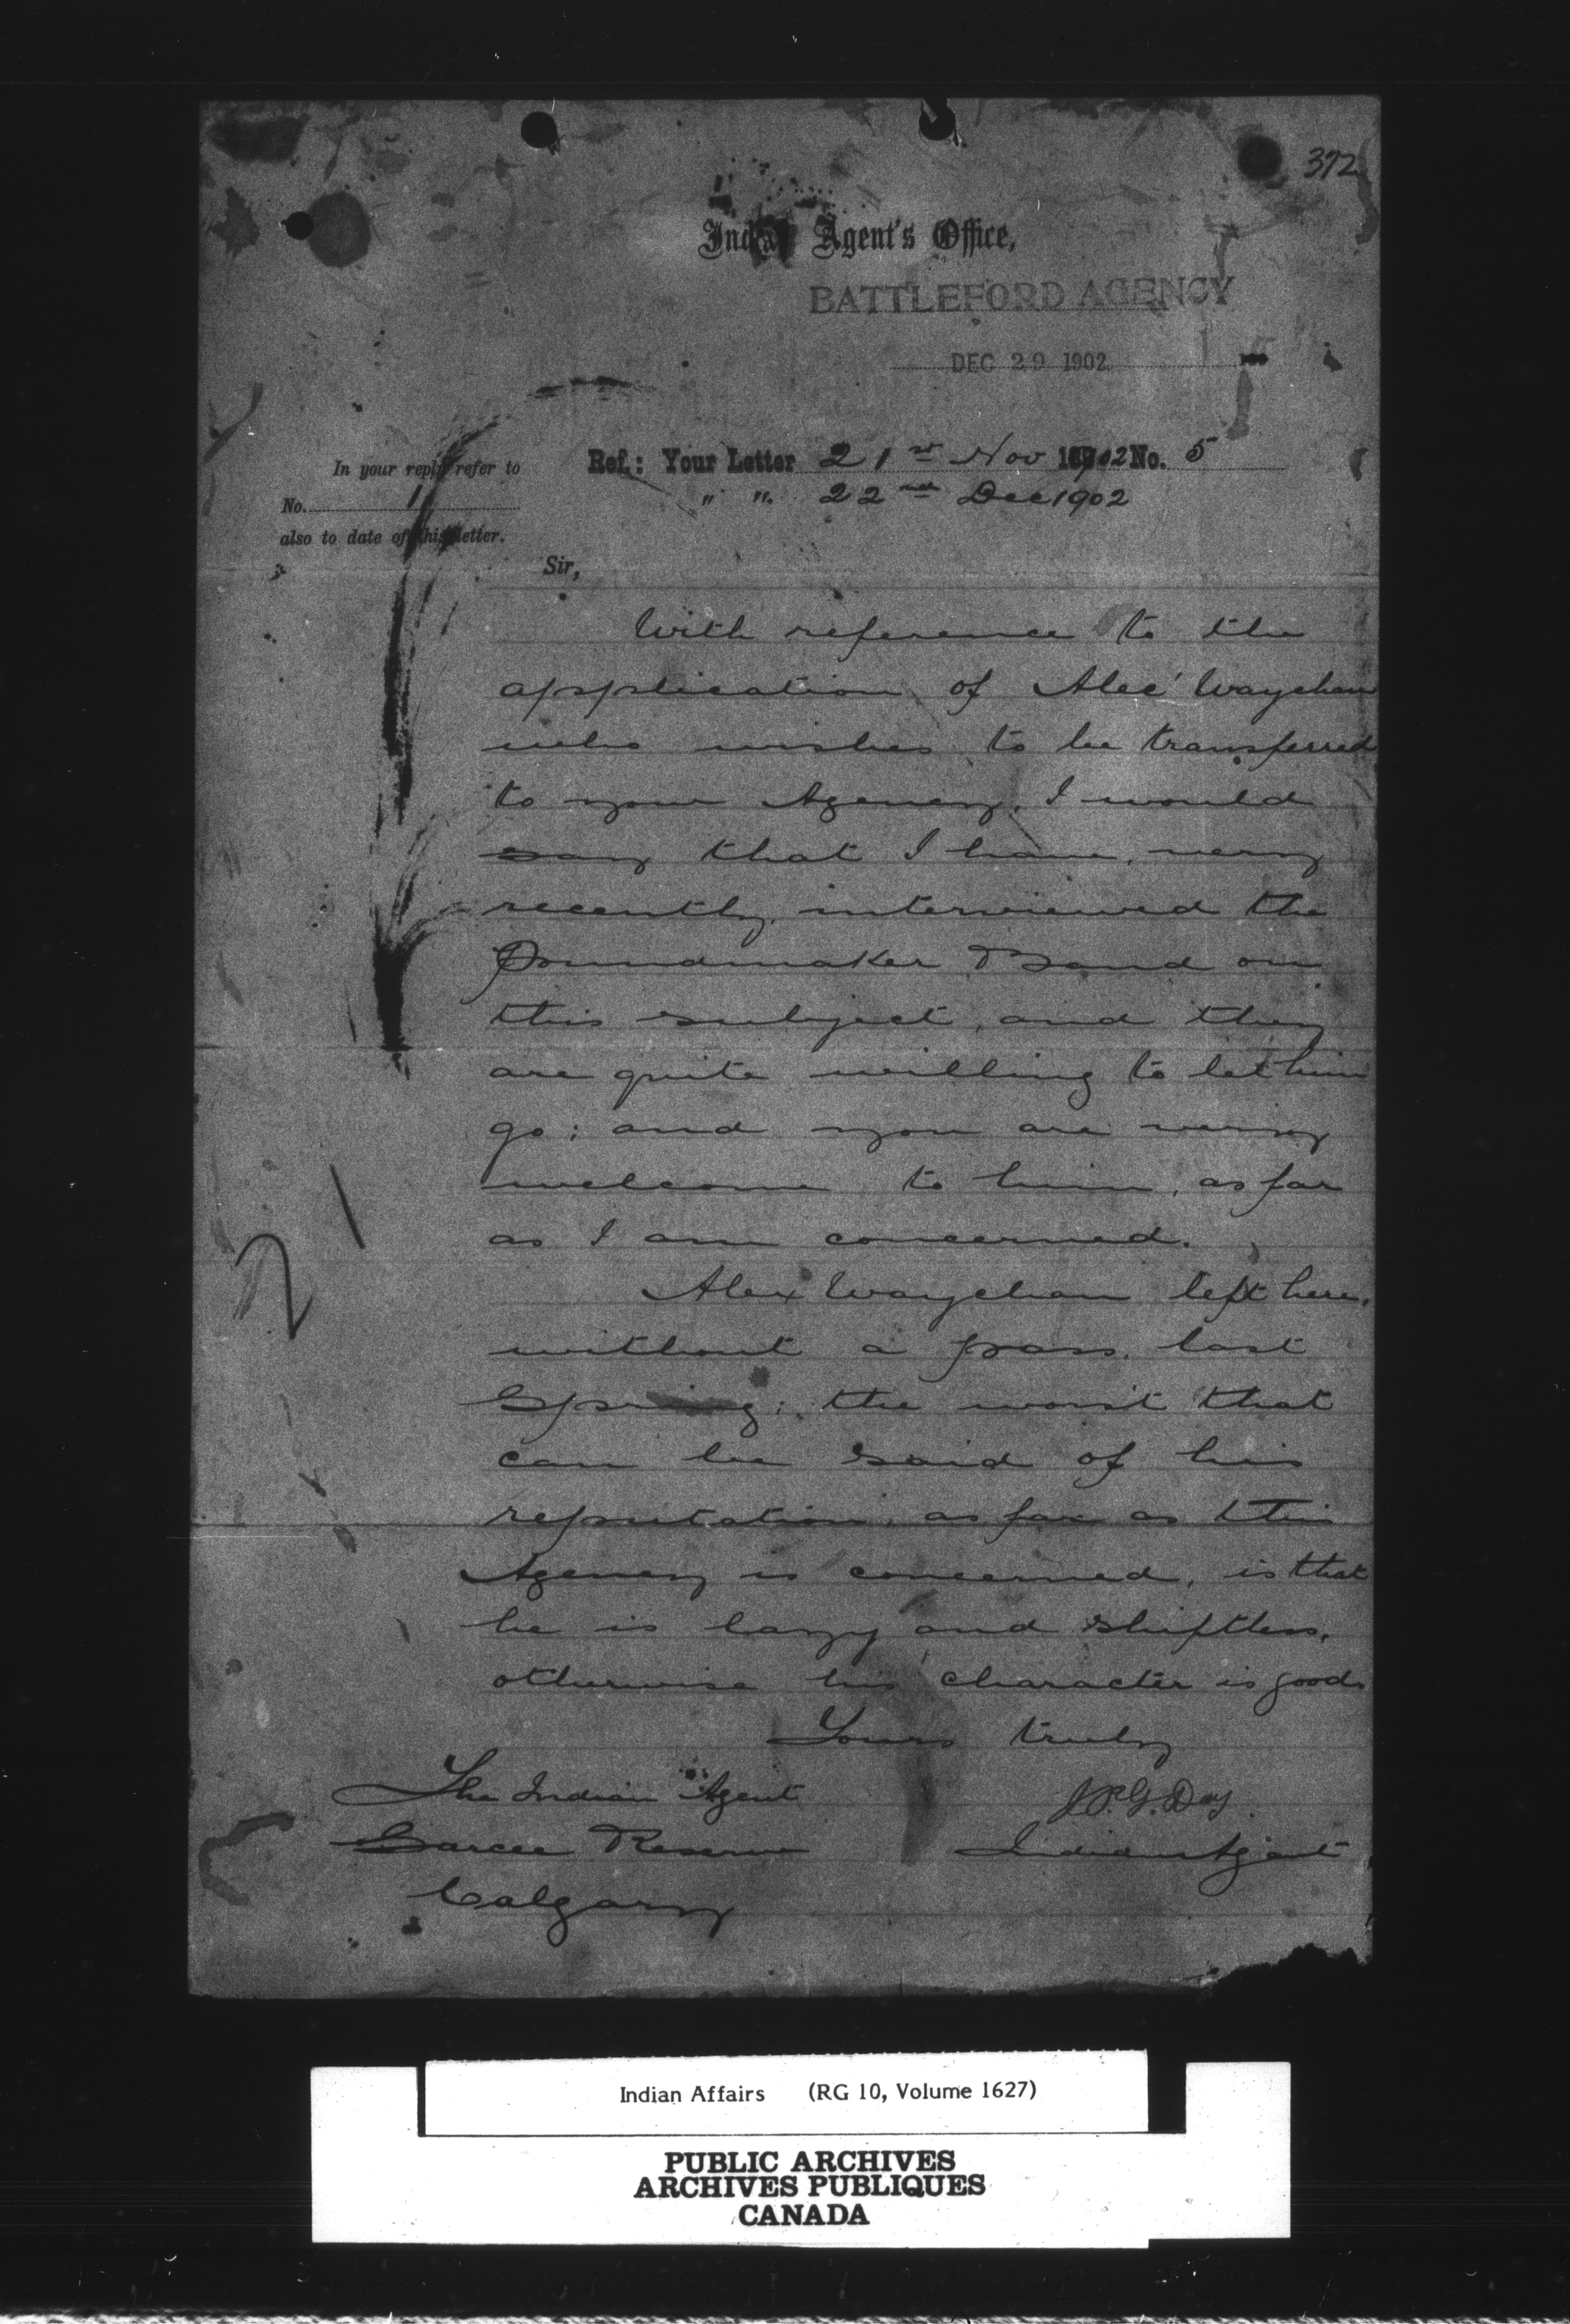 372
Indian Agent's Office,
BATTLEFORD AGENCY
DEC 29 1902
Ref.: Your Letter 21st Nov 1902 No. 5
" " 22nd Dec 1902
In your reply refer to
No. 1
also to date of this letter.
Sir,
With reference to the
application of Alec' Waychan
who wishes to be transferred
to your Agency, I would
say that I have, very
recently, interviewed the
Poundmaker Band on
this subject, and they
are quite willing to let him
go; and you are very
welcome to him, as far
as I am concerned.
Alex Waychan left here,
without a pass, last
Spring; the worst that
can be said of his
reputation, as far as this
Agency is concerned, is that
he is lazy and shiftless,
otherwise his character is good.
Yours truly
J.P.G. Day.
Indian Agent
The Indian Agent
Sarcee Reserve
Calgary
21
Indian Affairs (RG 10, Volume 1627)
PUBLIC ARCHIVES
ARCHIVES PUBLIQUES
CANADA